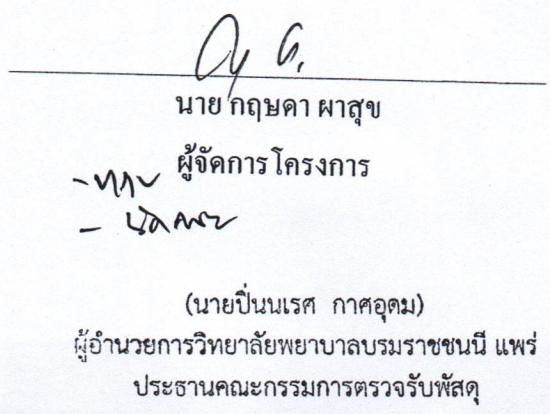 นาย กฤษดา ผาสุข
ผู้จัดการโครงการ
- ทราบ
(นายปิ่นนเรศ กาศอุดม)
ผู้อำนวยการวิทยาลัยพยาบาลบรมราชชนนี แพร่
ประธานคณะกรรมการตรวจรับพัสดุ